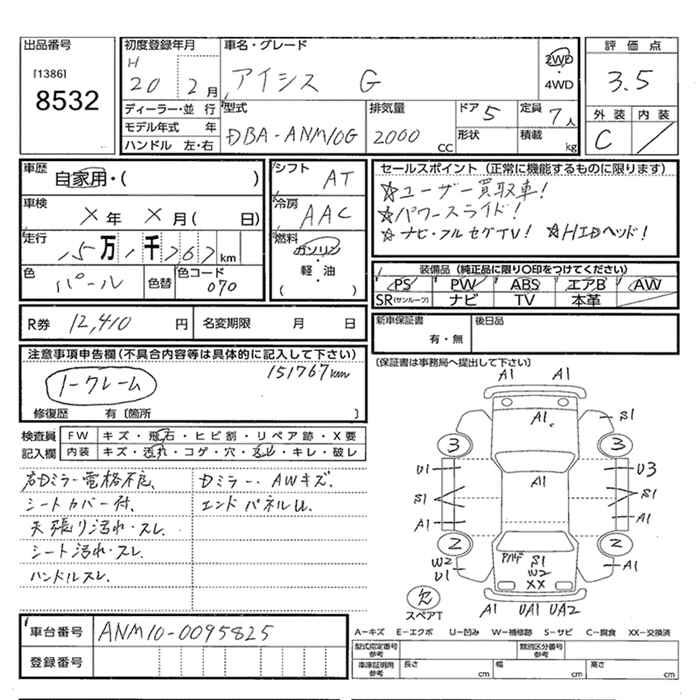 出品番号
[1386]
8532
初度登録年月
H
20 2月
ディーラー・並 行
モデル年式 年
ハンドル 左・右
車名・グレード
アイシス G
2WD
・
4WD
評 価 点
3.5
型式
DBA-ANM10G
排気量
2000 CC
ドア 5
形状
定員 7人
積載 kg
外 装 内 装
C
車歴
自家用・( )
車検
× 年 × 月 ( 日)
走行
15万1千767km
色
パール
色替
色コード
070
シフト
AT
冷房
AAC
燃料
ガソリン
・
軽・油
( )
セールスポイント (正常に機能するものに限ります)
☆ユーザー買取車!
☆パワースライド!
☆ナビ・フルセグTV! ☆HIDヘッド!
装備品 (純正品に限り〇印をつけてください)
PS PW ABS エアB AW
SR(サンルーフ) ナビ TV 本革
R券 12,410 円
名変期限 月 日
新車保証書
有・無
後日品
[保証書は事務局へ提出して下さい]
注意事項申告欄(不具合内容等は具体的に記入して下さい)
151767km
ノークレーム
修復歴 有 [箇所 ]
検査員
記入欄
FW キズ・飛石・ヒビ割・リペア跡・X要
内装 キズ・汚れ・コゲ・穴・キレ・破レ
右Dミラー電格不良、
シートカバー付、
天張り汚れ・スレ、
シート汚れ・スレ、
ハンドルスレ、
Dミラー、AWキズ、
エンドパネルU、
A1 A1
A1 S1
3 3
U1 U3
A1
S1 S1
A1 A1
2 2
W2
U1
パハゲ S1
W2
XX
A1
欠
スペアT
A1 UA1 UA2
A-キズ E-エクボ U-凹み W-補修跡 S-サビ C-腐食 XX-交換済
車台番号 ANM10-0095825
登録番号
型式指定番号
参考
類別区分番号
参考
車庫証明用
参考
長さ cm
幅 cm
高さ cm